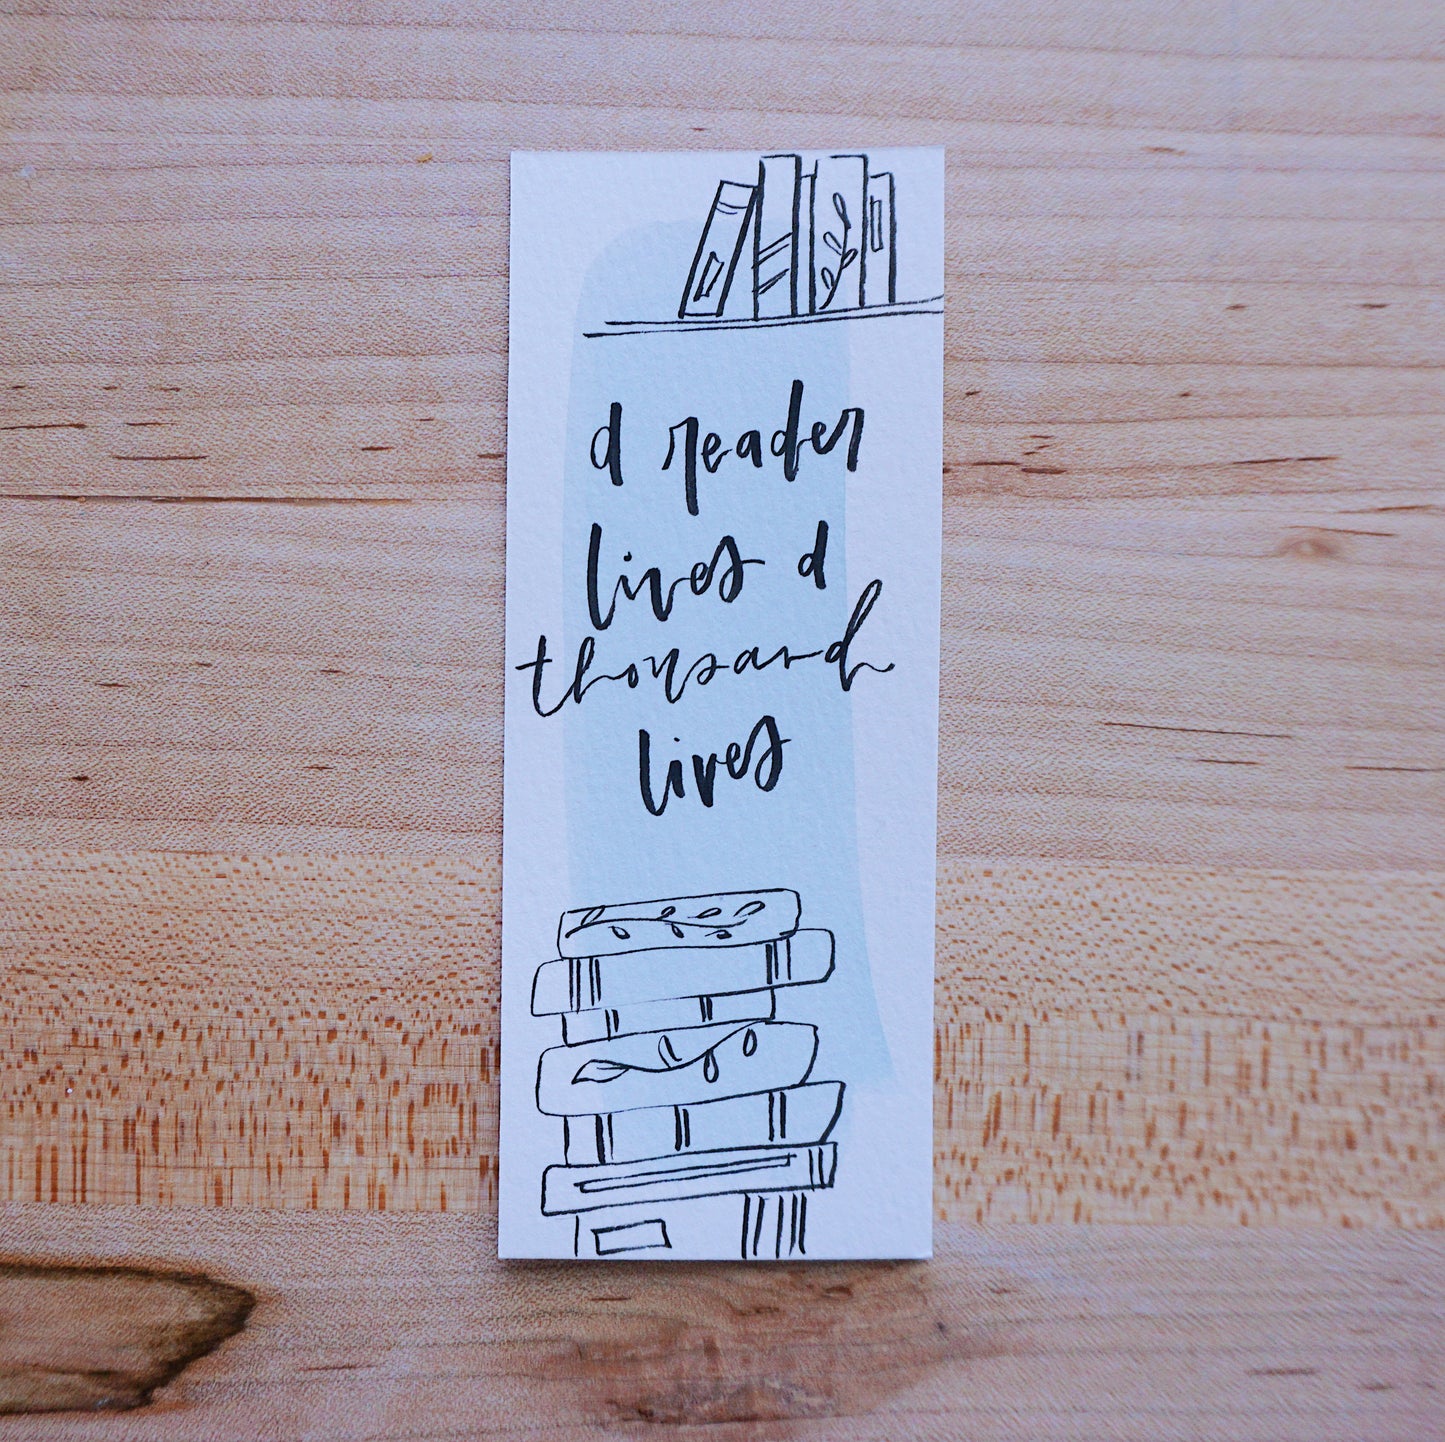 a reader
lives a
thousand
lives